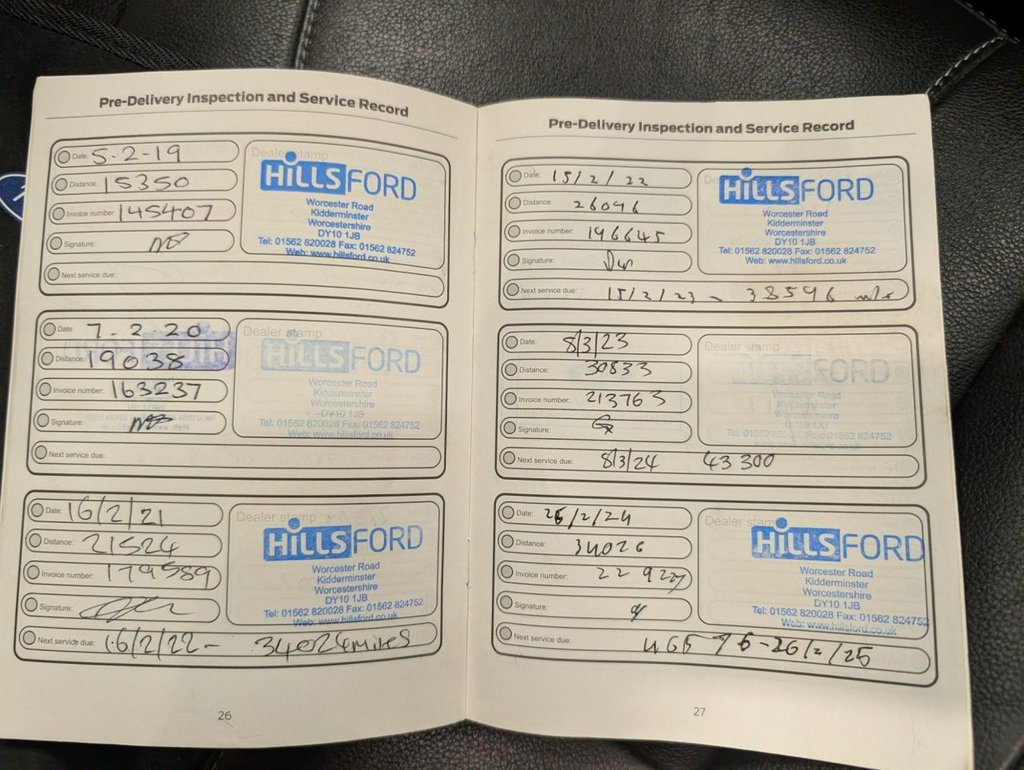 Pre-Delivery Inspection and Service Record
Date: 5-2-19
Distance: 15350
Invoice number: 145407
Signature:
Next service due:
Dealer stamp
HiLLS FORD
Worcester Road
Kidderminster
Worcestershire
DY10 1JB
Tel: 01562 820028 Fax: 01562 824752
Web: www.hillsford.co.uk
Date: 7-2-20
Distance: 19038
Invoice number: 163237
Signature:
Next service due:
Dealer stamp
HiLLS FORD
Worcester Road
Kidderminster
Worcestershire
DY10 1JB
Tel: 01562 820028 Fax: 01562 824752
Web: www.hillsford.co.uk
Date: 16/2/21
Distance: 21524
Invoice number: 179589
Signature:
Next service due: 16/2/22 - 34024 miles
Dealer stamp
HiLLS FORD
Worcester Road
Kidderminster
Worcestershire
DY10 1JB
Tel: 01562 820028 Fax: 01562 824752
Web: www.hillsford.co.uk
26
Pre-Delivery Inspection and Service Record
Date: 15/2/22
Distance: 26096
Invoice number: 196645
Signature:
Next service due: 15/2/23 - 38596 mls
HiLLS FORD
Worcester Road
Kidderminster
Worcestershire
DY10 1JB
Tel: 01562 820028 Fax: 01562 824752
Web: www.hillsford.co.uk
Date: 8/3/23
Distance: 30833
Invoice number: 213763
Signature:
Next service due: 8/3/24 43300
Dealer stamp
FORD
Worcester Road
Kidderminster
Worcestershire
DY10 1JB
Tel: 01562 820028 Fax: 01562 824752
Date: 26/2/24
Distance: 34026
Invoice number: 22927
Signature:
Next service due: 26/2/25
Dealer stamp
HiLLS FORD
Worcester Road
Kidderminster
Worcestershire
DY10 1JB
Tel: 01562 820028 Fax: 01562 824752
Web: www.hillsford.co.uk
27